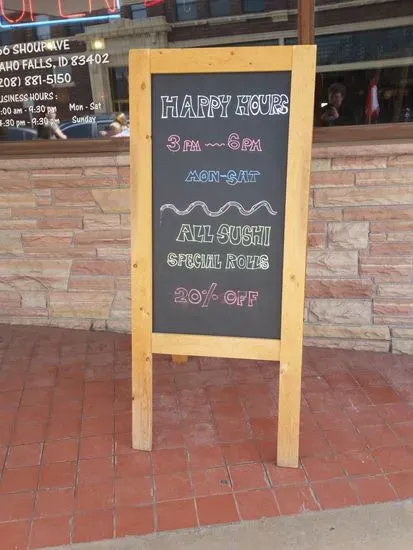 OPEN
SHOUP AVE
FALLS, ID 83402
208) 881-5150
BUSINESS HOURS :
:00 am - 9:30 pm Mon - Sat
:30 pm - 9:30 pm Sunday
HAPPY HOURS
3PM ~ 6PM
MON-SAT
ALL SUSHI
SPECIAL ROLLS
20% OFF